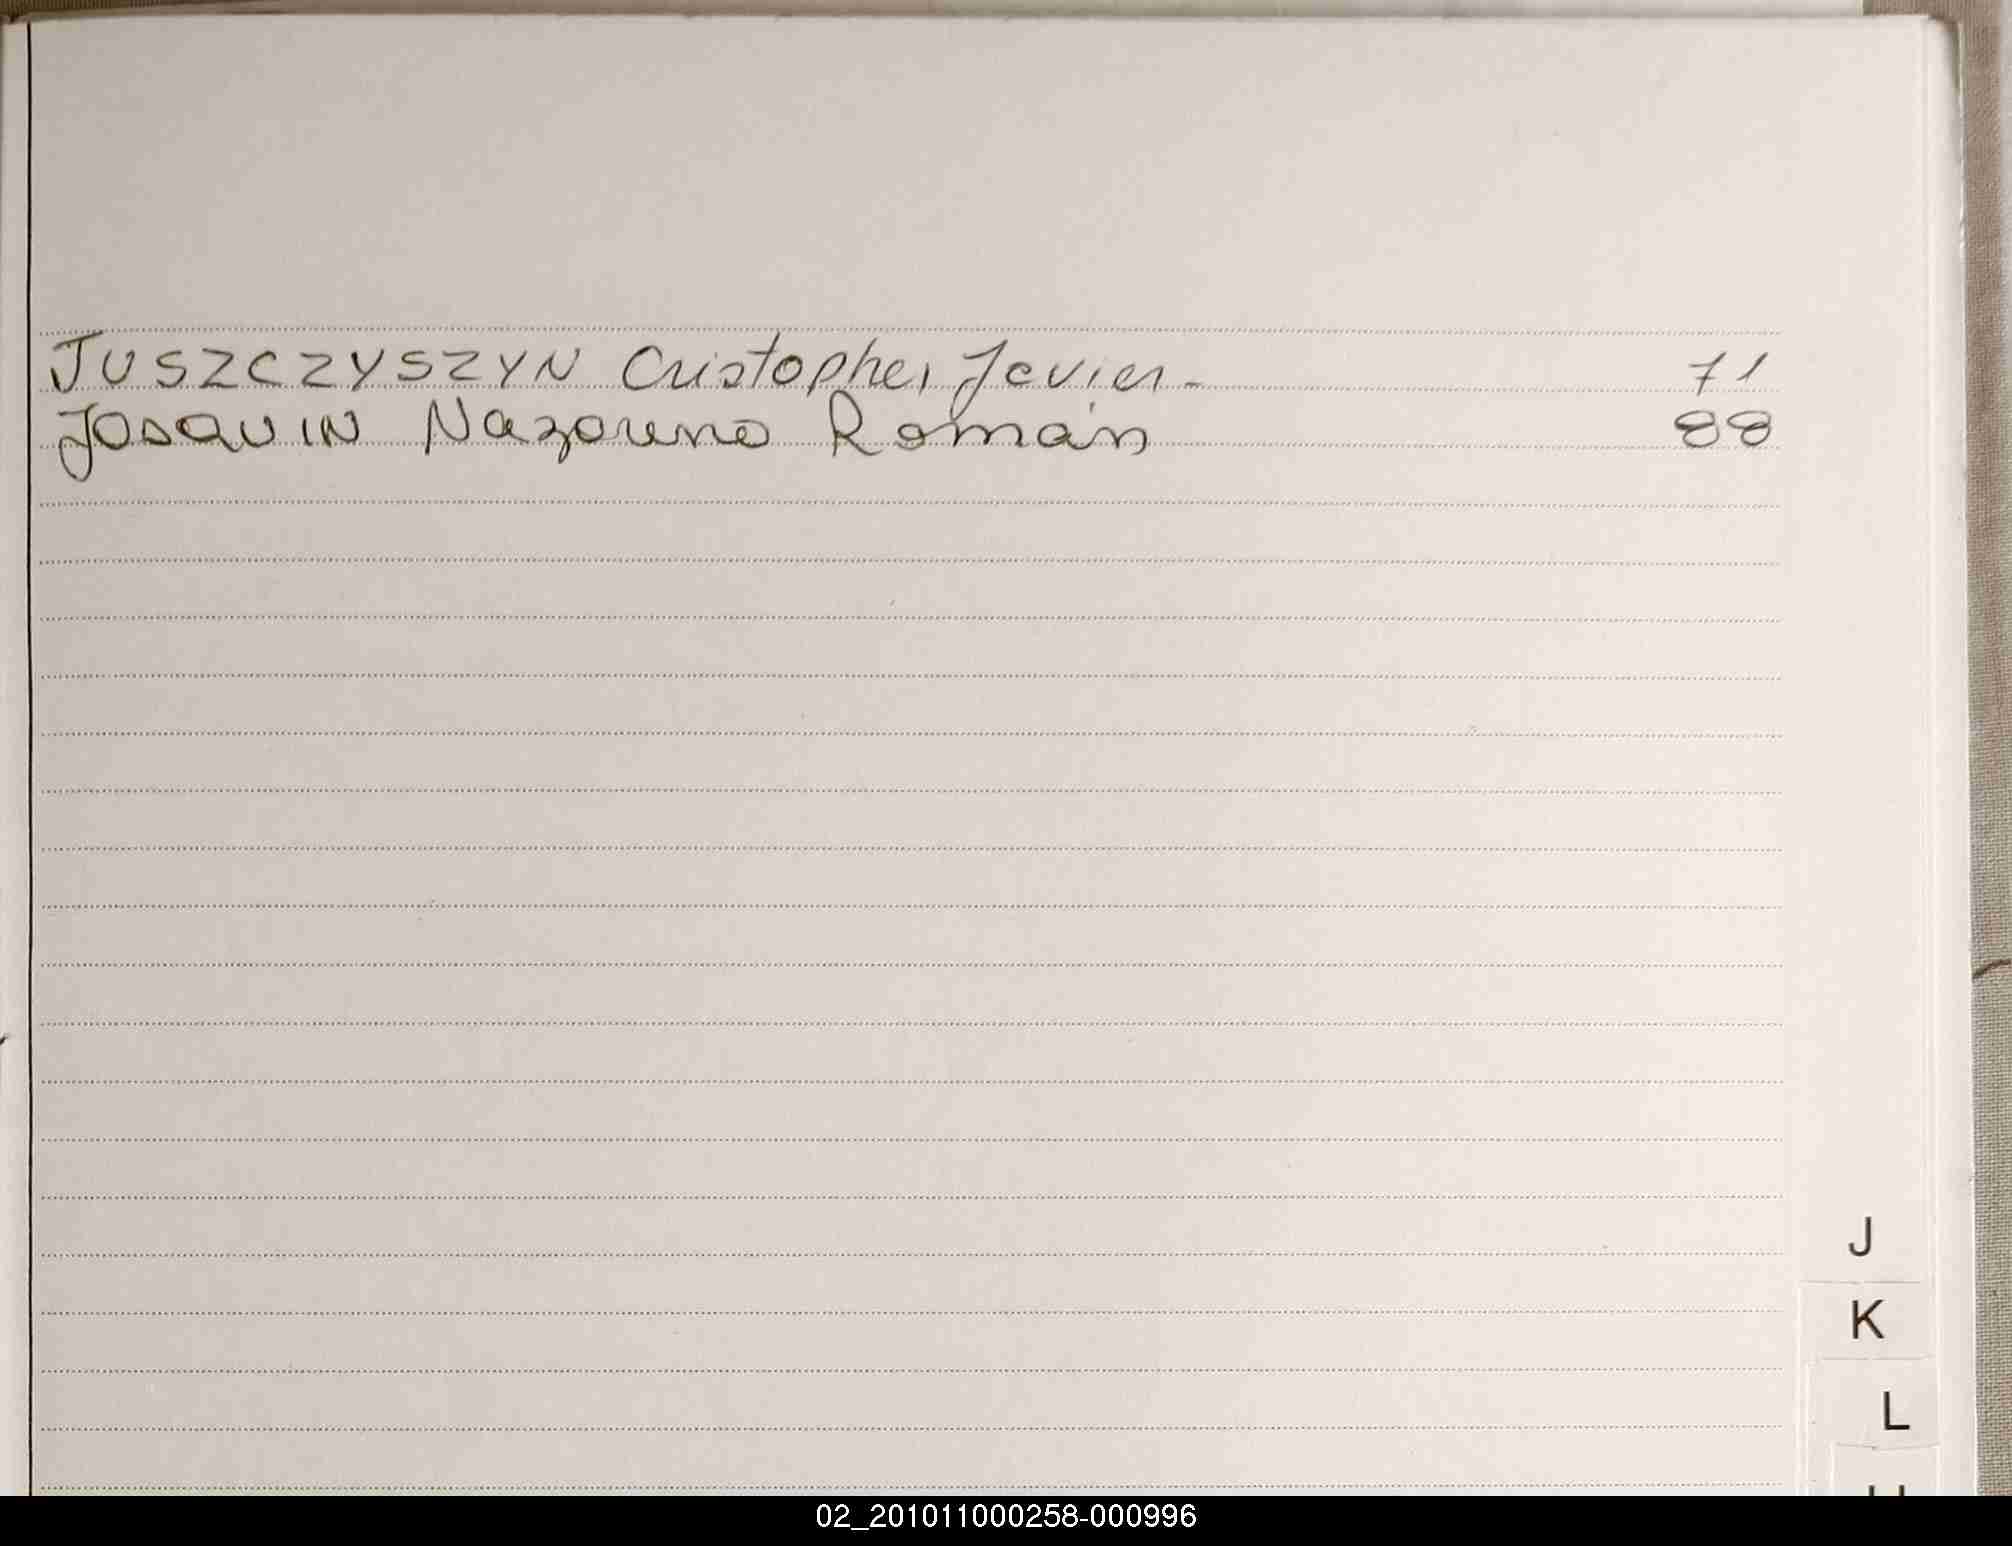 JUSZCZYSZYN Cristopher Javier - 71
JOAQUIN Nazareno Román 88
J
K
L
02_201011000258-000996